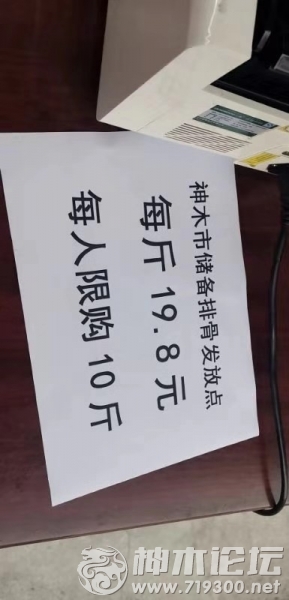 神木市储备排骨发放点
每斤19.8元
每人限购10斤
神木论坛
www.719300.net